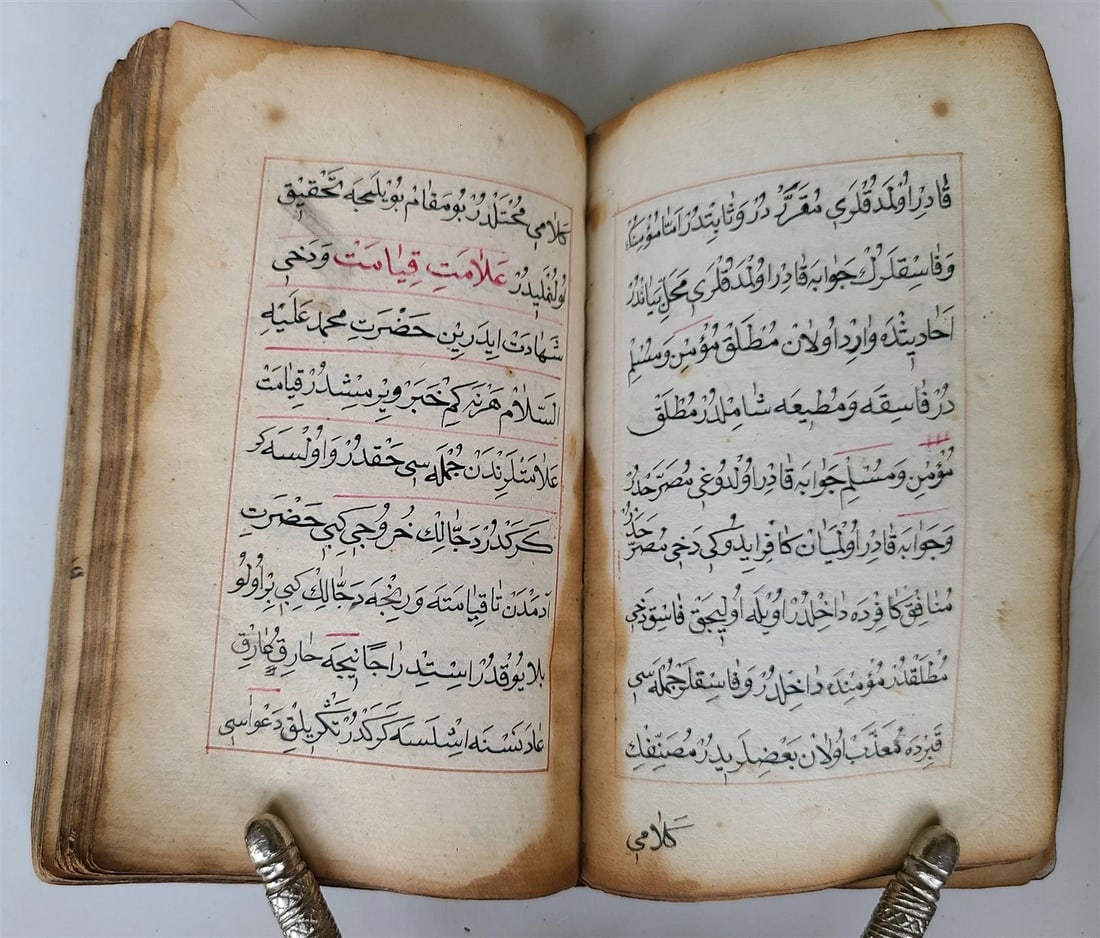 قادر اولمدقلری مقرّر در و ثابتدر امّا مؤمنك
و فاسقلرك جوابه قادر اولمدقلری محلّ بیاندر
احادیثده وارد اولان مطلق مؤمن و مسلم
در فاسقه و مطیعه شاملدر مطلق
مؤمن و مسلم جوابه قادر اولدوغی مصرّحدر
و جوابه قادر اولمیان كافر ایدوكی دخی مصرّحدر
منافق كافرده داخلدر اویله اولیجق فاسق دخی
مطلقدر مؤمنده داخلدر و فاسقلر جمله سی
قبرده معذّب اولان بعضلریدر مصنّفك
كلامی
كلامی محتملدر بو مقام بویلجه تحقیق
اولنملیدر علامت قیامت و دخی
شهادت ایدرین حضرت محمد علیه
السلام هر نه كم خبر ویرمشدر قیامت
علامتلرندن جمله سی حقدر و اولسه كر
كركدر دجّالك خروجی كبی حضرت
آدمدن تا قیامته ورنجه دجّالك كبی بر اولو
بلا یوقدر استدراجا نیجه خارق
عاد نسنه اشلسه كركدر تكریلق دعواسی